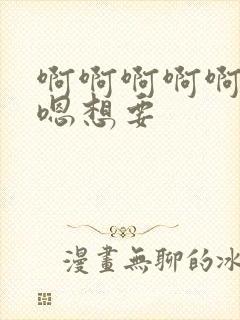 啊啊啊啊啊
嗯想要
漫畫無聊的冰